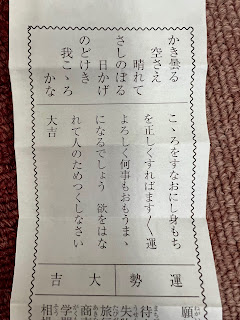 かき曇る
空さえ
晴れて
さしのぼる
日かげ
のどけき
我こゝろ
かな
こゝろをすなおにし身もち
を正しくすればます〱運
よろしく何事もおもうまゝ
になるでしょう 欲をはな
れて人のためつくしなさい
大吉
運勢
大吉
願
待
失
旅
商
学
相